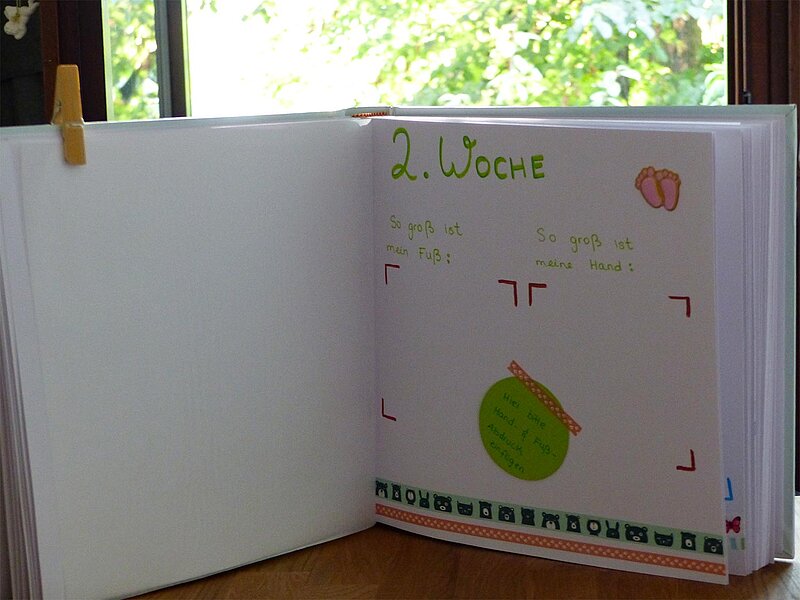 2. WOCHE
So groß ist
mein Fuß:
So groß ist
meine Hand:
Hier bitte
Hand & Fuß-
Abdruck
einfügen